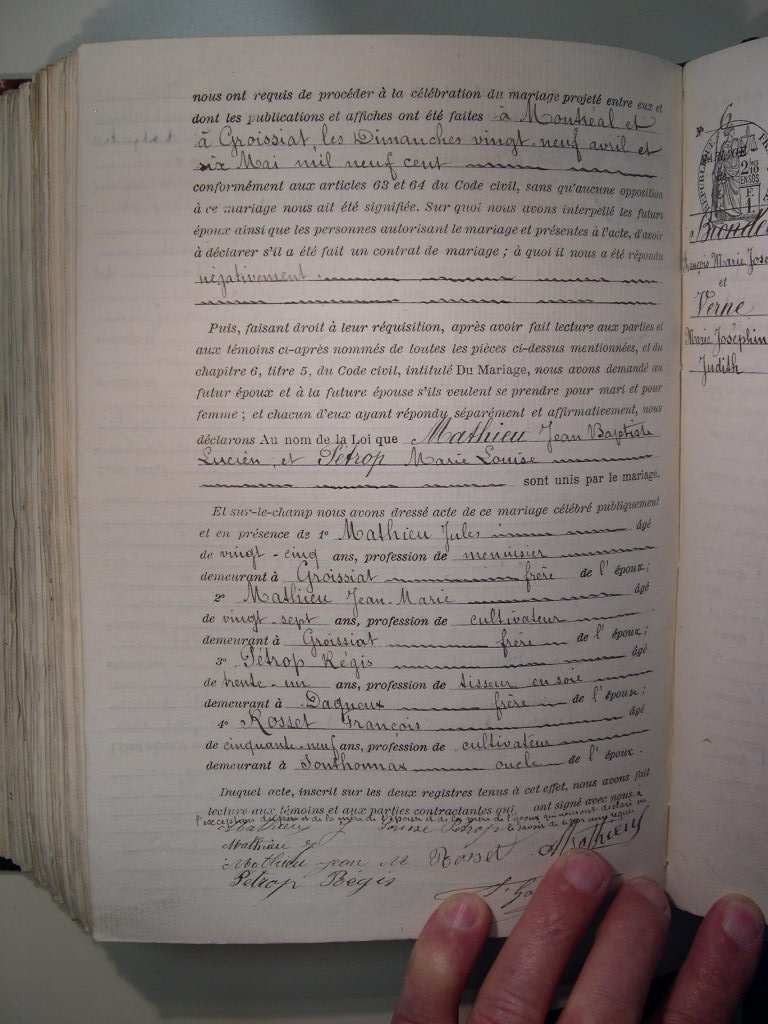 nous ont requis de procéder à la célébration du mariage projeté entre eux et
dont les publications et affiches ont été faites à Montréal et
à Groissiat, les Dimanches vingt-neuf avril et
six Mai mil neuf cent
conformément aux articles 63 et 64 du Code civil, sans qu'aucune opposition
à ce mariage nous ait été signifiée. Sur quoi nous avons interpellé les futurs
époux ainsi que les personnes autorisant le mariage et présentes à l'acte, d'avoir
à déclarer s'il a été fait un contrat de mariage ; à quoi il nous a été répondu
négativement
Puis, faisant droit à leur réquisition, après avoir fait lecture aux parties et
aux témoins ci-après nommés de toutes les pièces ci-dessus mentionnées, et du
chapitre 6, titre 5, du Code civil, intitulé Du Mariage, nous avons demandé au
futur époux et à la future épouse s'ils veulent se prendre pour mari et pour
femme ; et chacun d'eux ayant répondu séparément et affirmativement, nous
déclarons Au nom de la Loi que Mathieu Jean Baptiste
Lucien, et Pétrop Marie Louise
sont unis par le mariage.
Et sur-le-champ nous avons dressé acte de ce mariage célébré publiquement
et en présence de 1° Mathieu Jules âgé
de vingt-cinq ans, profession de menuisier
demeurant à Groissiat frère de l'époux;
2° Mathieu Jean-Marie âgé
de vingt-sept ans, profession de cultivateur
demeurant à Groissiat frère de l'époux;
3° Pétrop Régis âgé
de trente-un ans, profession de tisseur en soie
demeurant à frère de l'épouse;
4° Rosset François âgé
de cinquante-neuf ans, profession de cultivateur
demeurant à Sonthonnax oncle de l'époux.
Duquel acte, inscrit sur les deux registres tenus à cet effet, nous avons fait
lecture aux témoins et aux parties contractantes qui ont signé avec nous à
l'exception de la mère de l'épouse et de la mère de l'époux qui nous ont déclaré ne
le savoir de ce par nous requis
Mathieu J Louise Pétrop
Mathieu J
Mathieu Jean M Rosset Mathieu
Pétrop Régis
N° 6
RÉPUBLIQUE
Marie José
et
Verne
Marie Joséphin
Judith